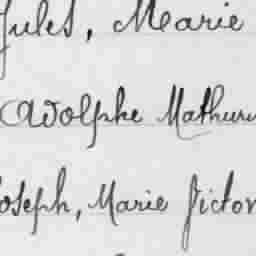 Jules, Marie
Adolphe Mathuri
Joseph, Marie Victor